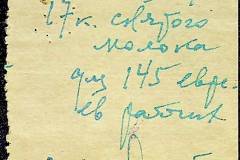 17 к. снятого
молока
для 145 евре-
ев рабочих